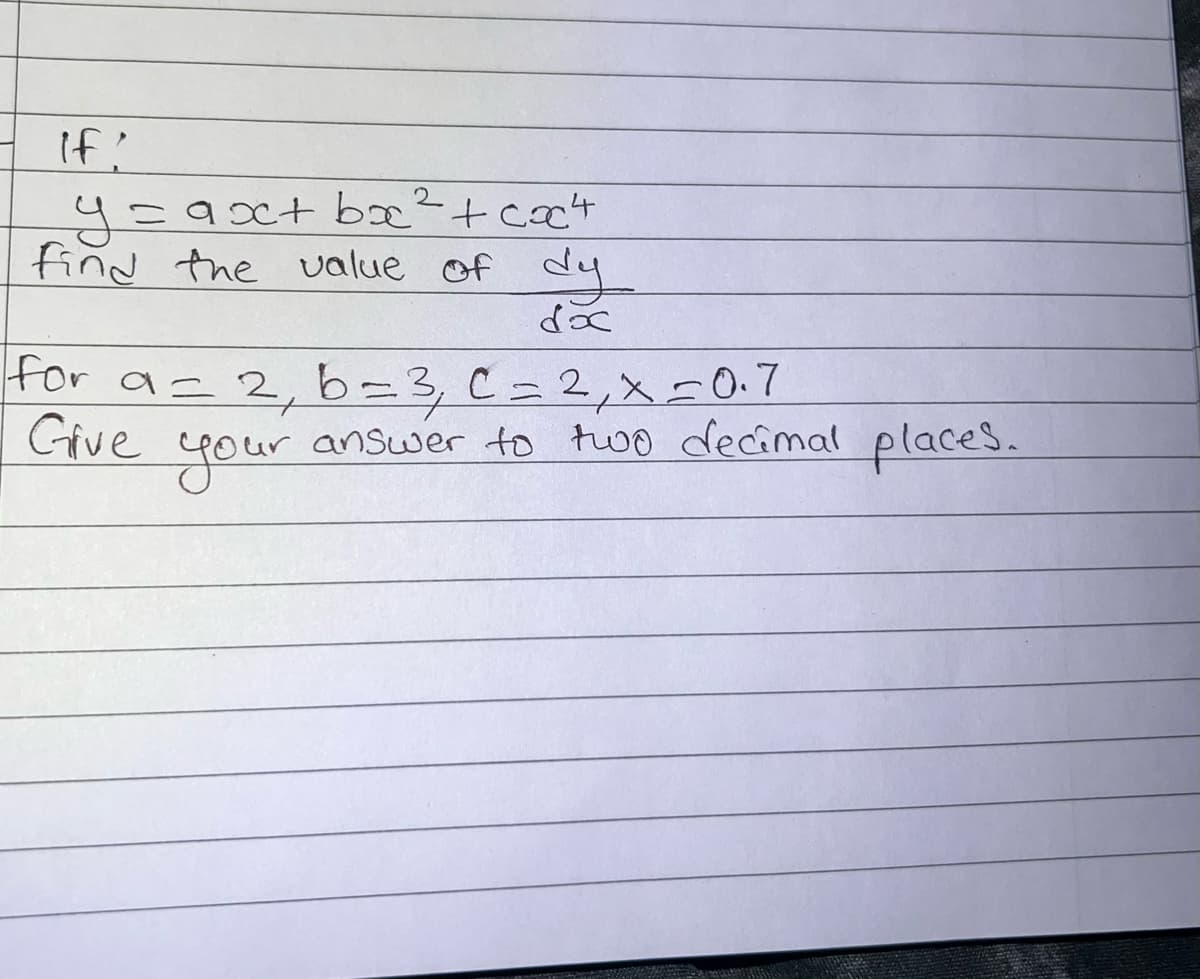 If:
y = ax + bx² + cx⁴
find the value of dy
dx
for a = 2, b = 3, C = 2, x = 0.7
Give your answer to two decimal places.